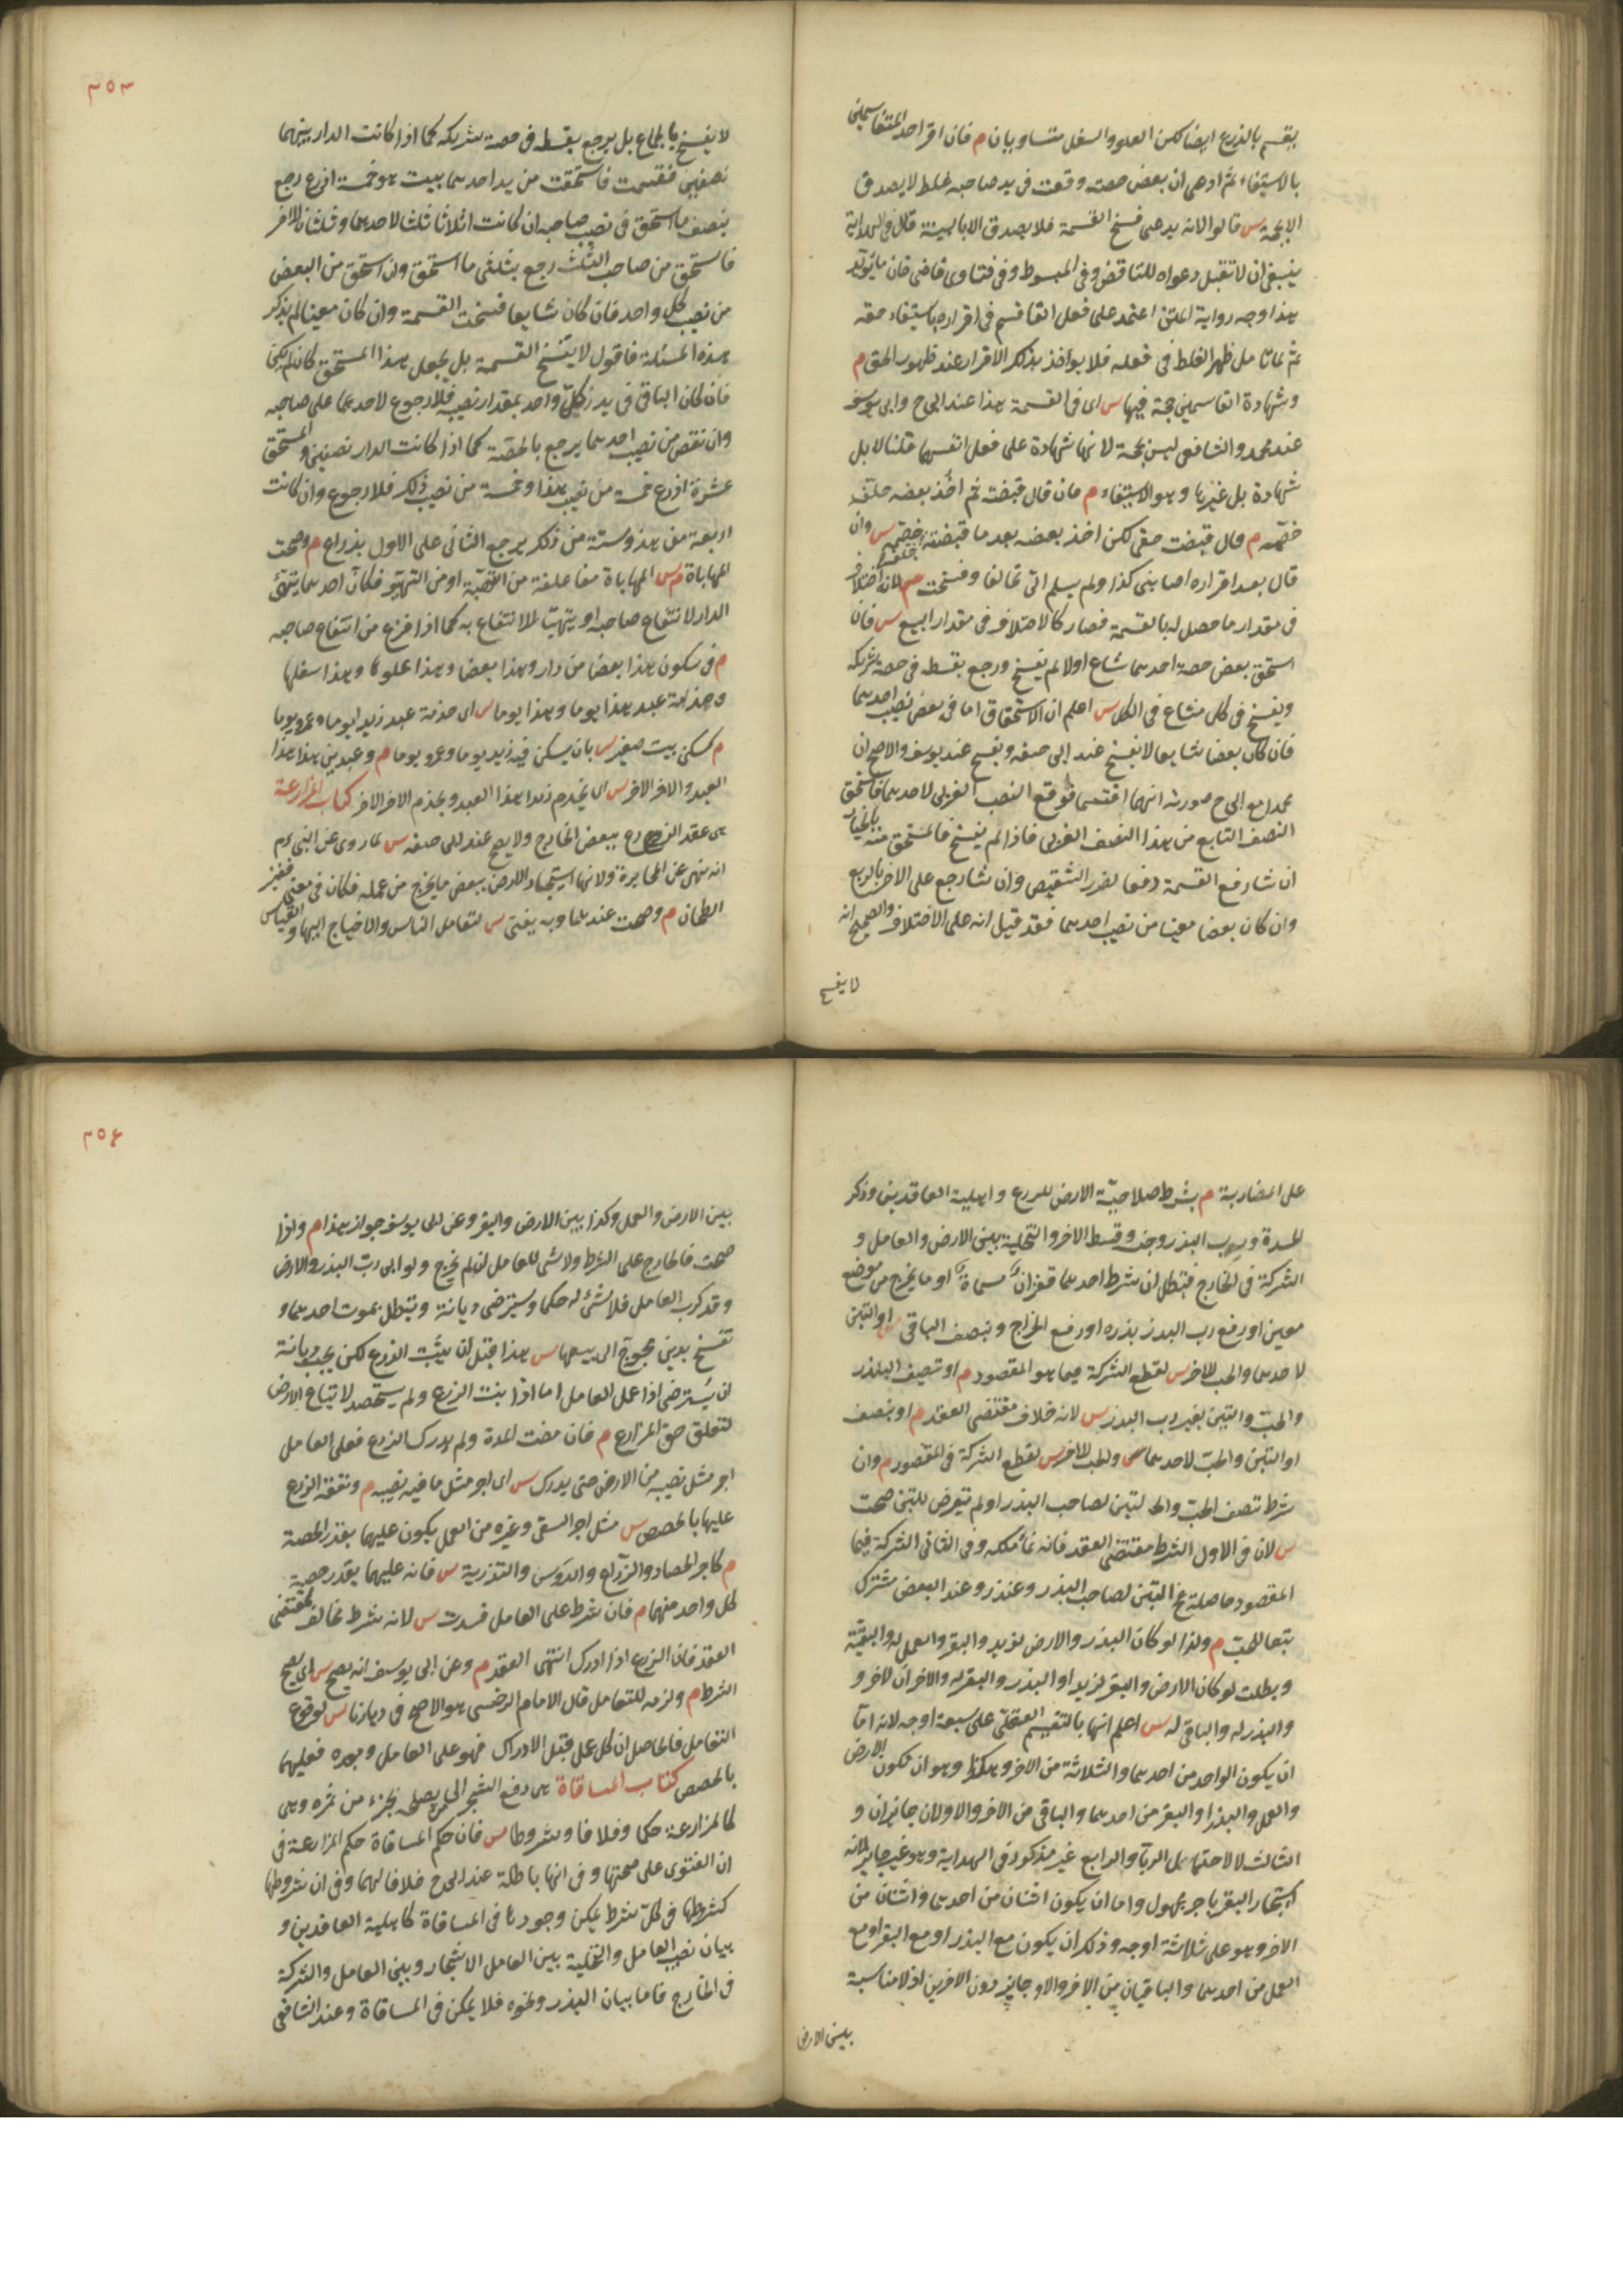 يقسم بالذرع ايضا لكن العلو والسفل متساويان م فان اقر احد المتقاسمين
بالاستيفاء ثم ادعى ان بعض حصته وقعت فى يد صاحبه غلط لا يصدق
الا بحجة س قالوا لانه يدعى فسخ القسمة فلا يصدق الا بالبينة قال فى الهداية
ينبغى ان لا تقبل دعواه للتناقض وفى المبسوط وفى فتاوى قاضى خان ما يؤيد
هذا وجه رواية المتن اعتمد على فعل القاسم فى اقراره باستيفاء حقه
ثم لما تامل ظهر الغلط فى فعله فلا يواخذ بذلك الاقرار عند ظهور الحق م
وشهادة القاسمين حجة فيها س اى فى القسمة هذا عند ابى ح وابى يوسف
عند محمد والشافعى ليس بحجة لانها شهادة على فعل انفسهما قلنا لا بل
شهادة بل غيرها وهو الاستيفاء م فان قال قبضت ثم اخذ بعضه حلف
خصمه م وان قال قبضت حقى لكن اخذ بعضه بعد ما قبضته حلف خصمه س وان
قال بعد اقراره اصابنى كذا ولم يسلم الى تحالفا وفسخت س لانه اختلاف
فى مقدار ما حصل له بالقسمة فصار كالاختلاف فى مقدار المبيع س فان
استحق بعض حصة احدهما شاع اولا لم يفسخ ورجع بقسط فى حصة شريكه
ويفسخ فى كل مشاع فى الكل س اعلم ان الاستحقاق اما فى بعض نصيب احدهما
فان كان بعضا شايعا لا يفسخ عند ابى حنيفه ويفسخ عند يوسف والاصح ان
محمدا مع ابى ح صورته انهما اقتسما فوقع النصف الغربى لاحدهما فاستحق
النصف الشايع من هذا النصف الغربى فاذا لم يفسخ فالمستحق منه بالخيار
ان شاء رفع القسمة دفعا لضرر التشقيص وان شاء رجع على الاخر بالربع
وان كان بعضا معينا من نصيب احدهما فقد قيل انه على الاختلاف والصحيح انه
لا يفسخ
٣٥٣
لا يفسخ بالاجماع بل يرجع بقسط فى حصة شريكه كما اذا كانت الدار بينهما
نصفين فقسمت فاستحقت من يد احدهما بيت هو خمسة اذرع رجع
بنصف ما استحق فى نصيب صاحبه ان كانت اثلاثا ثلثا لاحدهما وثلثان للاخر
فاستحق من صاحب الثلث رجع بثلثى ما استحق وان استحق من البعض
من نصيب كل واحد فان كان شايعا فسخت القسمة وان كان معينا لم يذكر
هذه المسئلة فاقول لا يفسخ القسمة بل يجعل هذا المستحق كان لم يكن
فان كان الباقى فى يد كل واحد بمقدار نصيبه فلا رجوع لاحدهما على صاحبه
وان نقص من نصيب احدهما يرجع بالحصة كما اذا كانت الدار نصفين والمستحق
عشرة اذرع خمسة من نصيب هذا وخمسة من نصيب ذلك فلا رجوع وان كانت
اربعة من هذا وستة من ذلك يرجع الثانى على الاول بذراع م وصحت
المهاياة م س المهاياة مفاعلة من التهيئة او من التهيؤ فكان احدهما يتهيئ
الدار لانتفاع صاحبه او يتهيئا للانتفاع به كما اذا فرغ من انتفاع صاحبه
م فى سكون هذا بعضا من دار وهذا بعضا وهذا علوها وهذا سفلها
وخدمة عبد هذا يوما وهذا يوما س اى خدمة عبد زيدا يوما وعمرو يوما
م كسكنى بيت صغير س بان يسكن فيه زيد يوما وعمرو يوما م وعبدين هذا هذا
العبد والاخر الاخر س اى يخدم زيدا هذا العبد ويخدم الاخر الاخر كتاب المزارعة
هى عقد الزرع ببعض الخارج ولا يصح عند ابى حنيفه س لما روى عن النبى عم
انه نهى عن المخابرة ولانها استيجار الارض ببعض ما يخرج من عمله فكان فى معنى قفيز
الطحان م وصحت عندهما وبه يفتى س لتعامل الناس والاحتياج اليها والقياس
على المضاربة م بشرط صلاحية الارض للزرع واهلية العاقدين وذكر
المدة ورب البذر وجنسه وقسط الاخر والتخلية بين الارض والعامل و
الشركة فى الخارج فتبطل ان شرط احدهما قفزان مسماة او ما يخرج من موضع
معين او رفع رب البذر بذره او رفع الخراج وبنصف الباقى س او التبن
لاحدهما والحب للاخر س لقطع الشركة فيما هو المقصود م او تنصيف البذر
والحب والتبن بغير رب البذر س لانه خلاف مقتضى العقد م او بنصف
او التبن والحب لاحدهما س والحب للاخر س لقطع الشركة فى المقصود م وان
شرط نصف الحب والتبن لصاحب البذر او لم يتعرض للتبن صحت
س لان فى الاول الشرط مقتضى العقد فانه نماء ملكه وفى الثانى الشركة فيما
المقصود حاصلة ثم التبن لصاحب البذر وعند البعض مشترك
تبعا للحب م ولذا لو كان البذر والارض لزيد والبقر والعمل له والبقية
وبطلت لو كان الارض والبقر لزيد او البذر والبقر له والاخران لاخر و
والبذر له والباقى له س اعلم انها بالتقسيم العقلى على سبعة اوجه لانه اما
ان يكون الواحد من احدهما والثلاثة من الاخر وهكذا وهو ان يكون الارض
والعمل والبذر او البقر من احدهما والباقى من الاخر والاولان جايزان و
الثالث لا لاحتمال الربا والرابع غير مذكور فى الهداية وهو غير جايز لانه
استيجار البقر باجر مجهول واما ان يكون اثنان من احدهما واثنان من
الاخر وهو على ثلاثة اوجه وذلك ان يكون مع البذر او مع البقر او مع
العمل من احدهما والباقيان من الاخر والاول جايز دون الاخرين اذ لا مناسبة
بين الارض
٣٥٤
بين الارض والعمل وكذا بين الارض والبقر وعن ابى يوسف جواز هذا م واذا
صحت فالخارج على الشرط ولا شى للعامل ان لم يخرج ولو ابى رب البذر والارض
وقد كرب العامل فلا شئ له حكما ويسترضى ديانة وتبطل بموت احدهما و
تفسخ بدين محوج الى بيعها س هذا قبل ان ينبت الزرع لكن يجب ديانة
ان يسترضى اذا عمل العامل اما اذا نبت الزرع ولم يستحصد لا تباع الارض
لتعلق حق المزارع م فان مضت المدة ولم يدرك الزرع فعلى العامل
اجر مثل نصيبه من الارض حتى يدرك س اى اجر مثل ما فيه نصيبه م ونفقة الزرع
عليهما بالحصص س مثل اجر السقى وغيره من العمل يكون عليهما بقدر الحصة
م كاجر الحصاد والزراع والدوس والتذرية س فانه عليهما بقدر حصة
كل واحد منهما م فان شرط على العامل فسدت س لانه شرط مخالف لمقتضى
العقد فان الزرع اذا ادرك انتهى العقد م وعن ابى يوسف انه يصح س اى يصح
الشرط م ولزمه للتعامل قال الامام السرخسى هو الاصح فى ديارنا س لوقوع
التعامل فالحاصل ان كل عمل قبل الادراك فهو على العامل وبعده فعليهما
بالحصص كتاب المساقاة هى دفع الشجر الى من يصلحه بجزء من ثمره وهى
كالمزارعة حكما وخلافا وشروطا س فان حكم المساقاة حكم المزارعة فى
ان الفتوى على صحتها وفى انها باطلة عند ابى ح خلافا لهما وفى ان شروطها
كشروطها فى كل شرط يمكن وجودها فى المساقاة كاهلية العاقدين و
بيان نصيب العامل والتخلية بين العامل الاشجار وبين العامل والشركة
فى الخارج فاما بيان البذر ونحوه فلا يمكن فى المساقاة وعند الشافعى